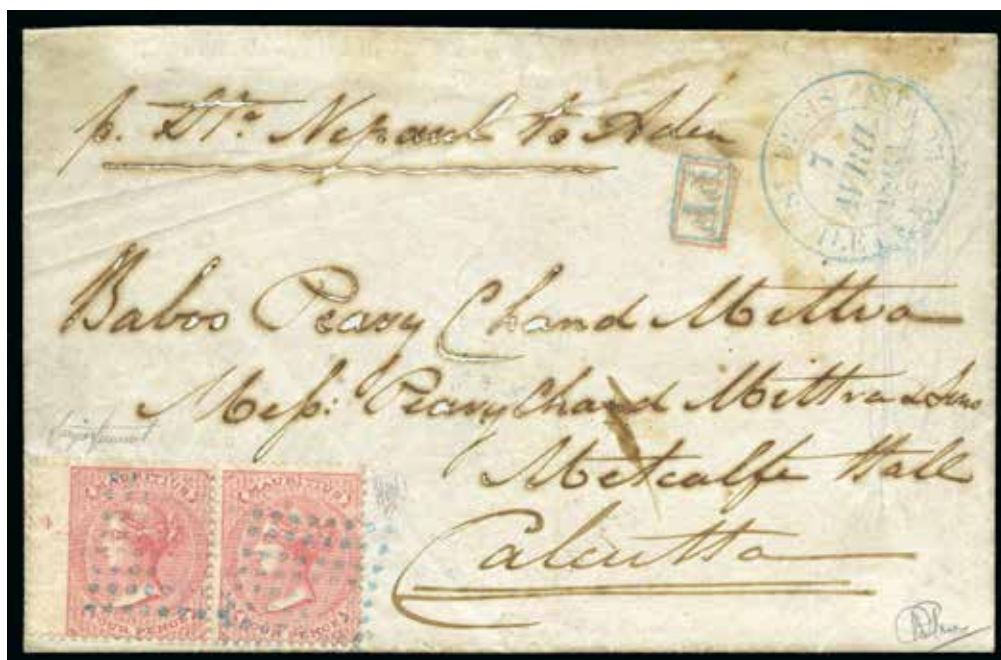 p. Str. Nepaul to Aden
ST DENIS
7
AVRIL
PF
Baboo Peary Chand Mittra
Mess: Peary Chand Mittra & Sons
Metcalfe Hall
Calcutta
MAURITIUS MAURITIUS
FOUR PENCE FOUR PENCE